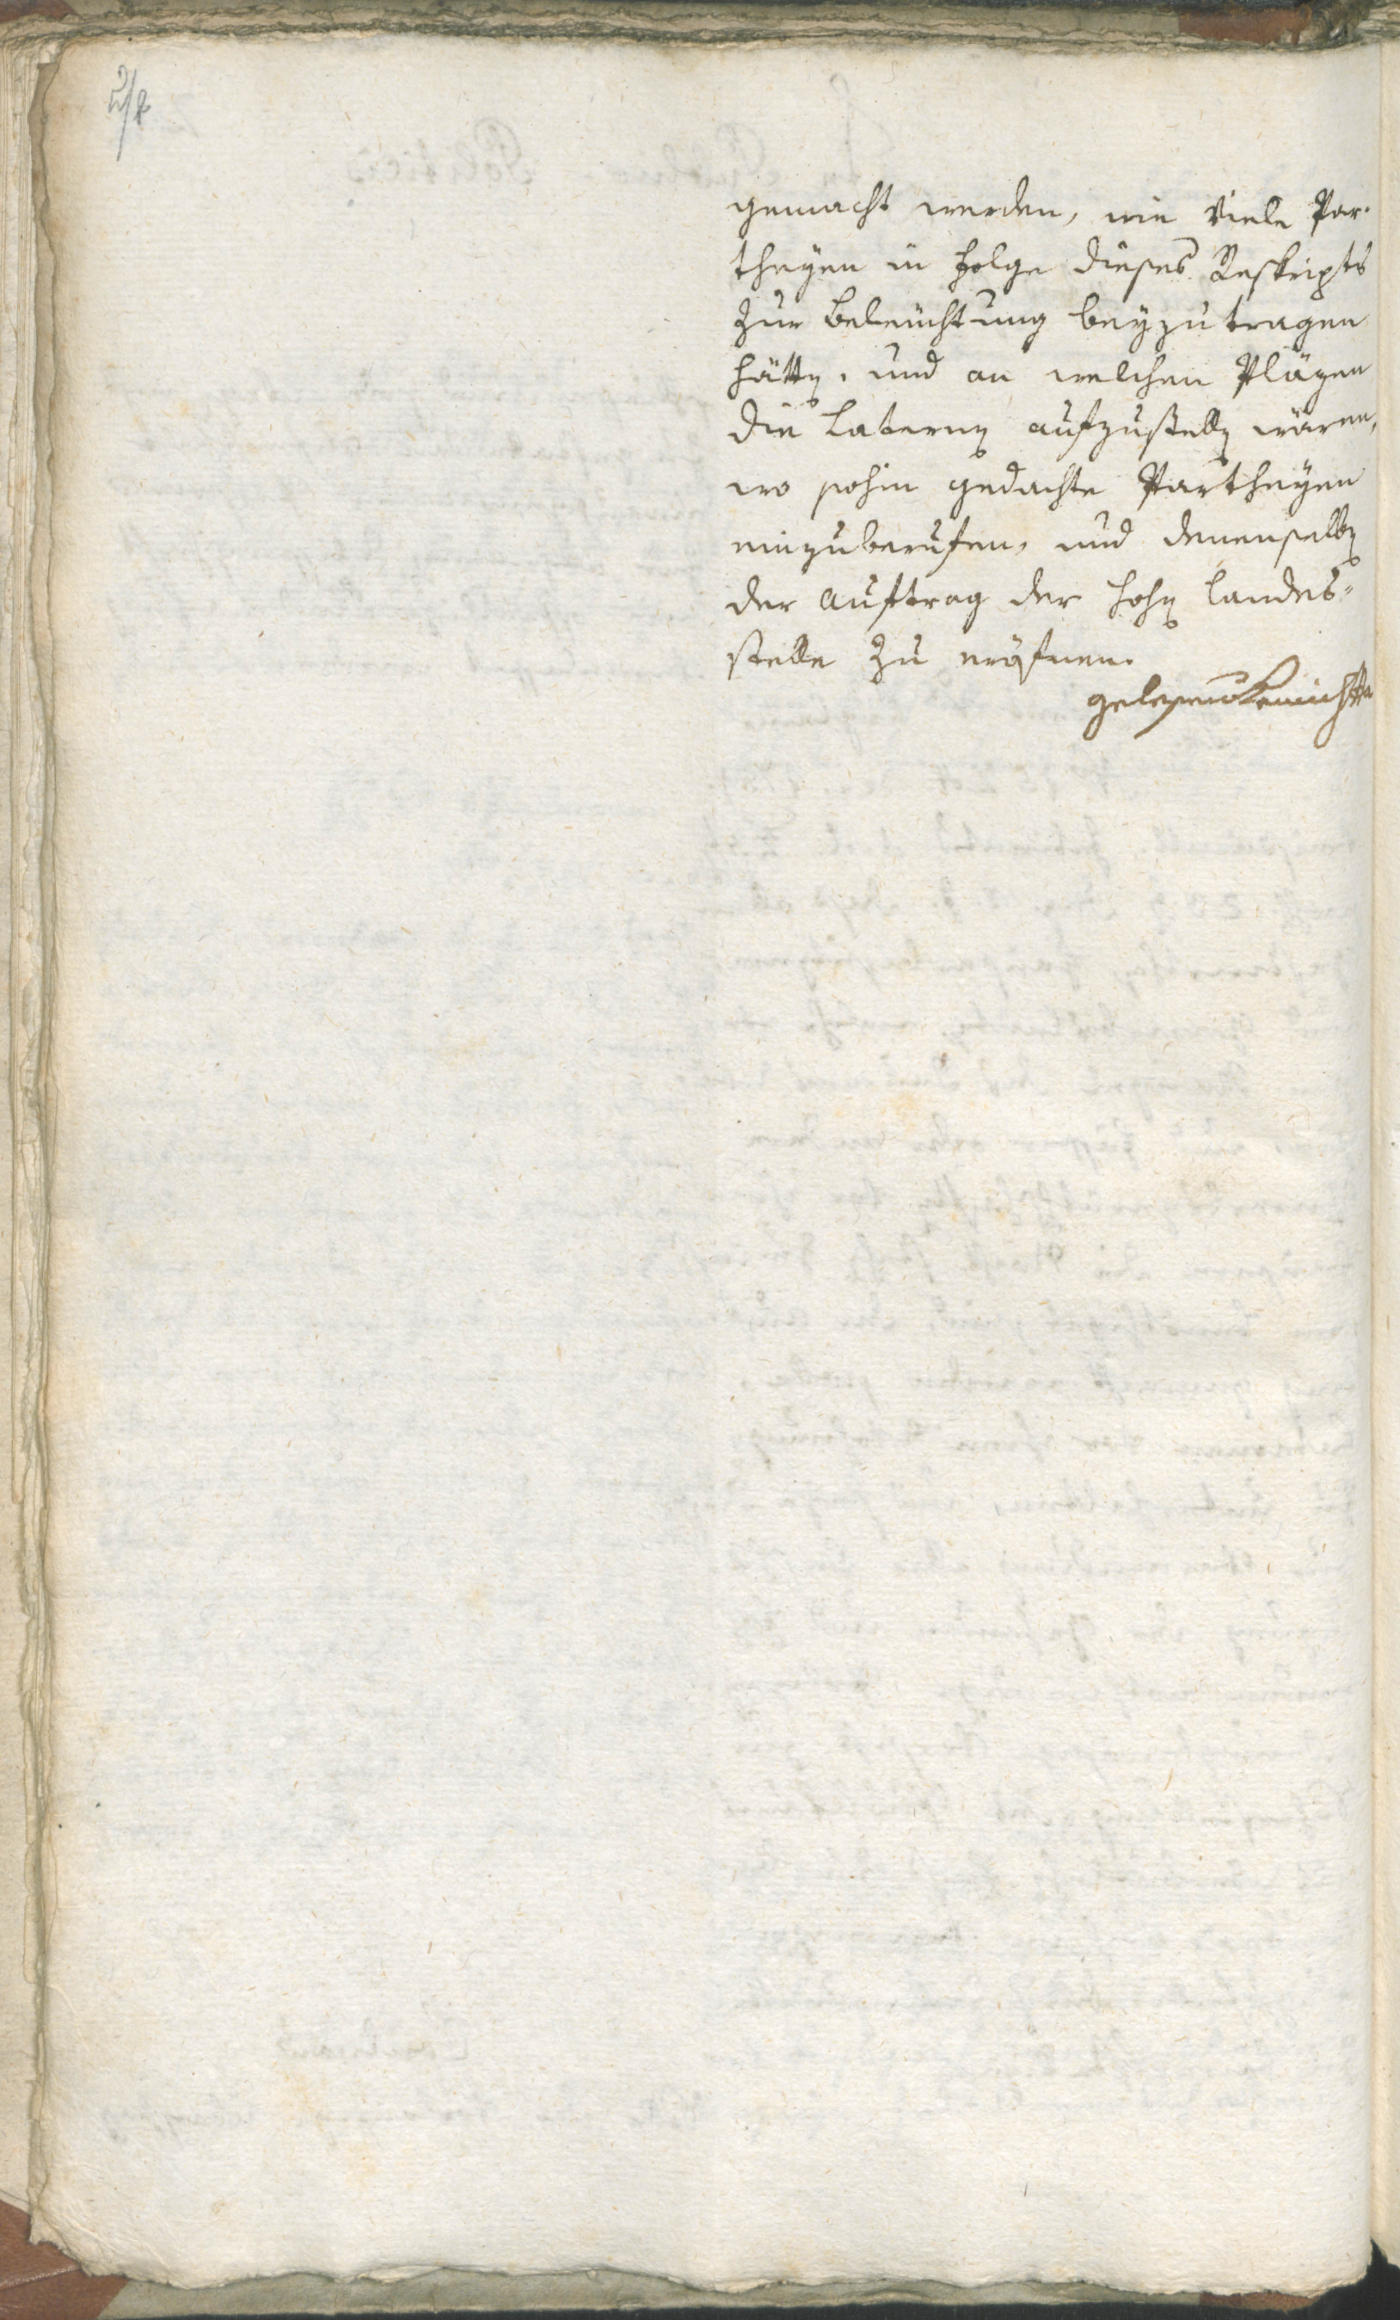 gemacht werden, wie viele Par-
theyen in Folge dieses Reskripts
zur Beleuchtung beyzutragen
hätten, und an welchen Pläzen
die Laternen aufzustellen wären,
wo sohin gedachte Partheyen
einzuberufen, und denenselben
der Auftrag der hohen Landes-
stelle zu eröfnen.
gelesen